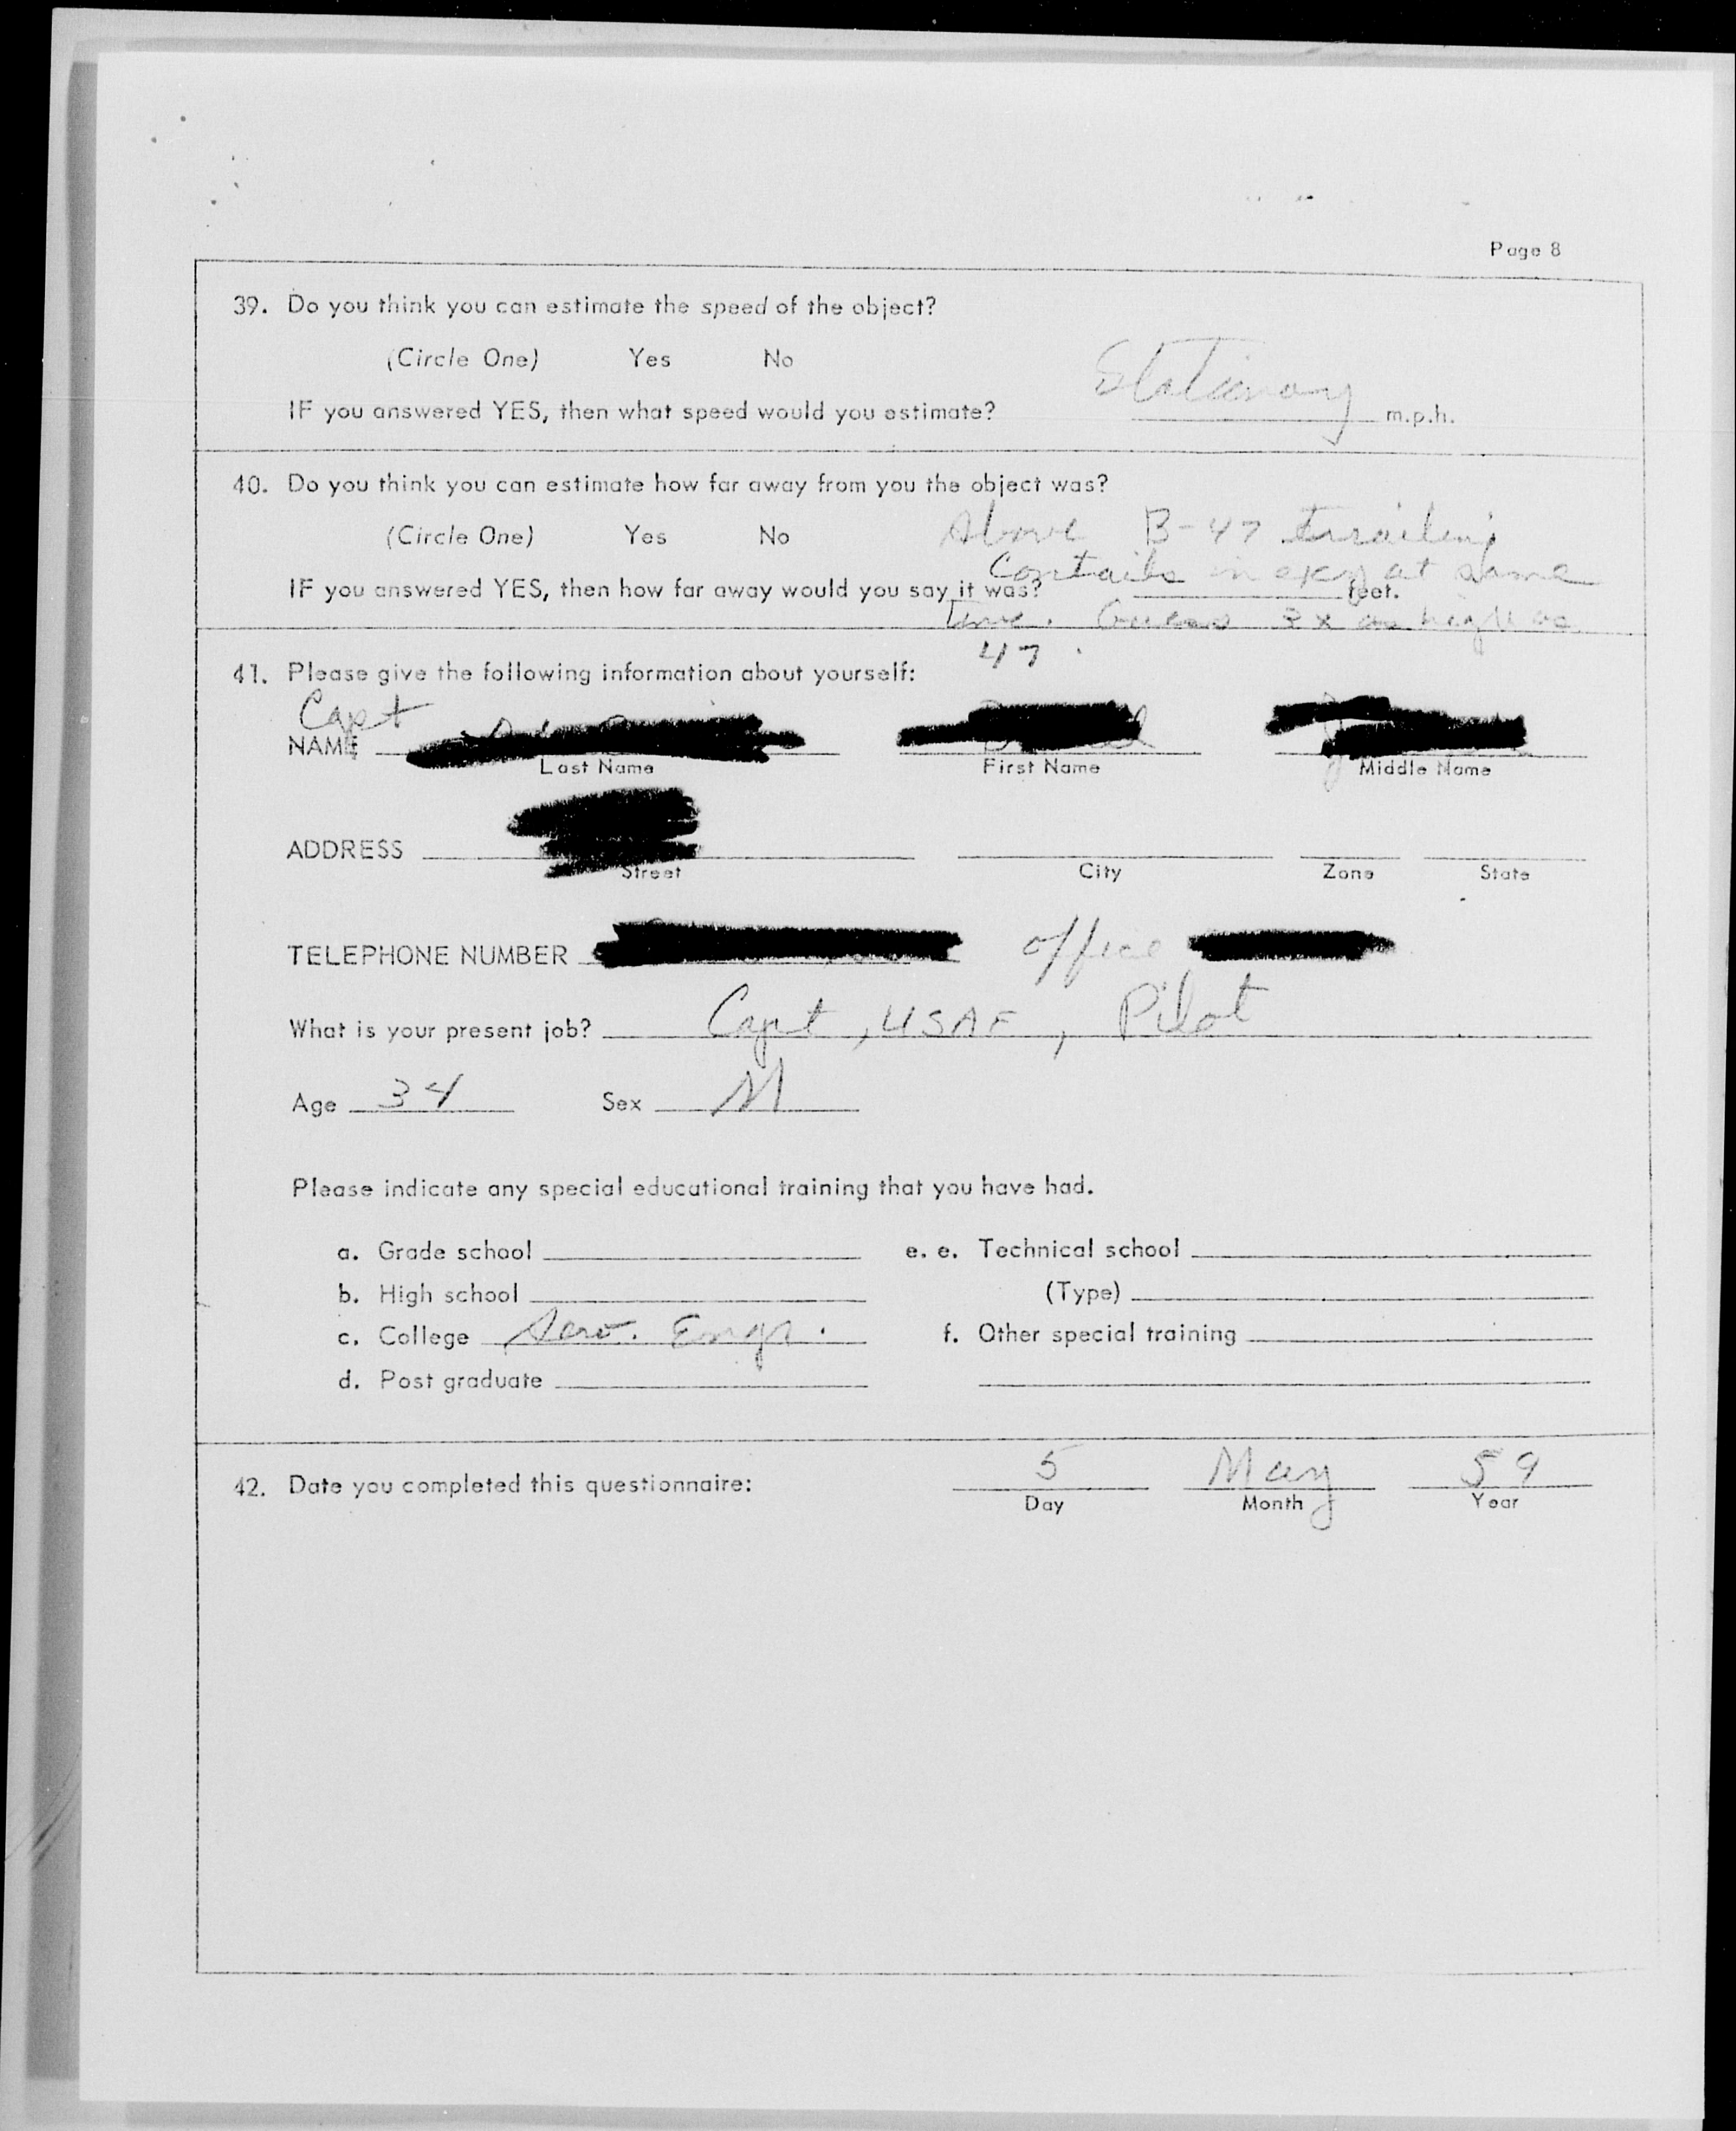 Page 8
39. Do you think you can estimate the speed of the object?
(Circle One) Yes No
Stationary
IF you answered YES, then what speed would you estimate? m.p.h.
40. Do you think you can estimate how far away from you the object was?
(Circle One) Yes No Above B-47 trailing
Contails in sky at same
IF you answered YES, then how far away would you say it was? feet.
time. Guess 3x as high as
47.
41. Please give the following information about yourself:
Capt
NAME
Last Name First Name Middle Name
ADDRESS
Street City Zone State
TELEPHONE NUMBER office
What is your present job? Capt, USAF, Pilot
Age 34 Sex M
Please indicate any special educational training that you have had.
a. Grade school e. e. Technical school
b. High school (Type)
c. College Aero. Engr. f. Other special training
d. Post graduate
42. Date you completed this questionnaire: 5 May 59
Day Month Year